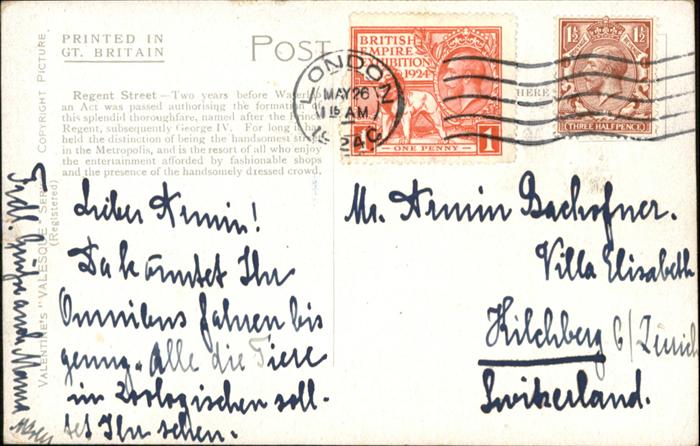 PRINTED IN
GT. BRITAIN
POST
Regent Street—Two years before Waterlo
an Act was passed authorising the formation of
this splendid thoroughfare, named after the
Regent, subsequently George IV. For long
held the distinction of being the handsomest
in the Metropolis, and is the resort of all who enjoy
the entertainment afforded by fashionable shops
and the presence of the handsomely dressed crowd.
HERE
BRITISH
EMPIRE
EXHIBITION
1924
1 1
—ONE PENNY—
1½ 1½
THREE HALFPENCE
LONDON
MAY 26
15 AM
1924C
COPYRIGHT PICTURE
VALENTINE'S "VALESQUE" SERIES
(Registered)
Lieber Armin!
Da könntet Ihr
Omnibus fahren bis
genug. Alle die Tiere
im Zoologischen soll-
tet Ihr sehen.
Mr. Armin Bachofner.
Villa Elisabeth
Kilchberg b/Zürich
Switzerland.